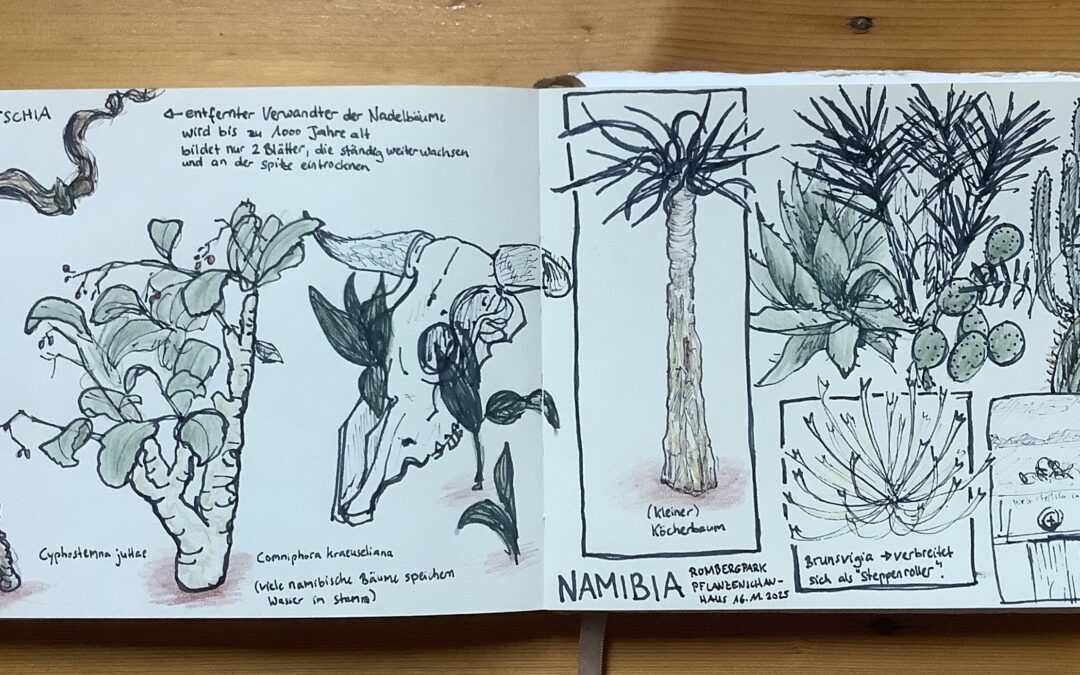 TSCHIA
entfernter Verwandter der Nadelbäume
wird bis zu 1000 Jahre alt
bildet nur 2 Blätter, die ständig weiterwachsen
und an der Spitze eintrocknen
Cyphostemna juttae
Commiphora kraeuseliana
(viele namibische Bäume speichern
Wasser im Stamm)
(kleiner)
Köcherbaum
NAMIBIA
ROMBERGPARK
PFLANZENSCHAU-
HAUS 16.11.2025
Brunsvigia → verbreitet
sich als "Steppenroller".